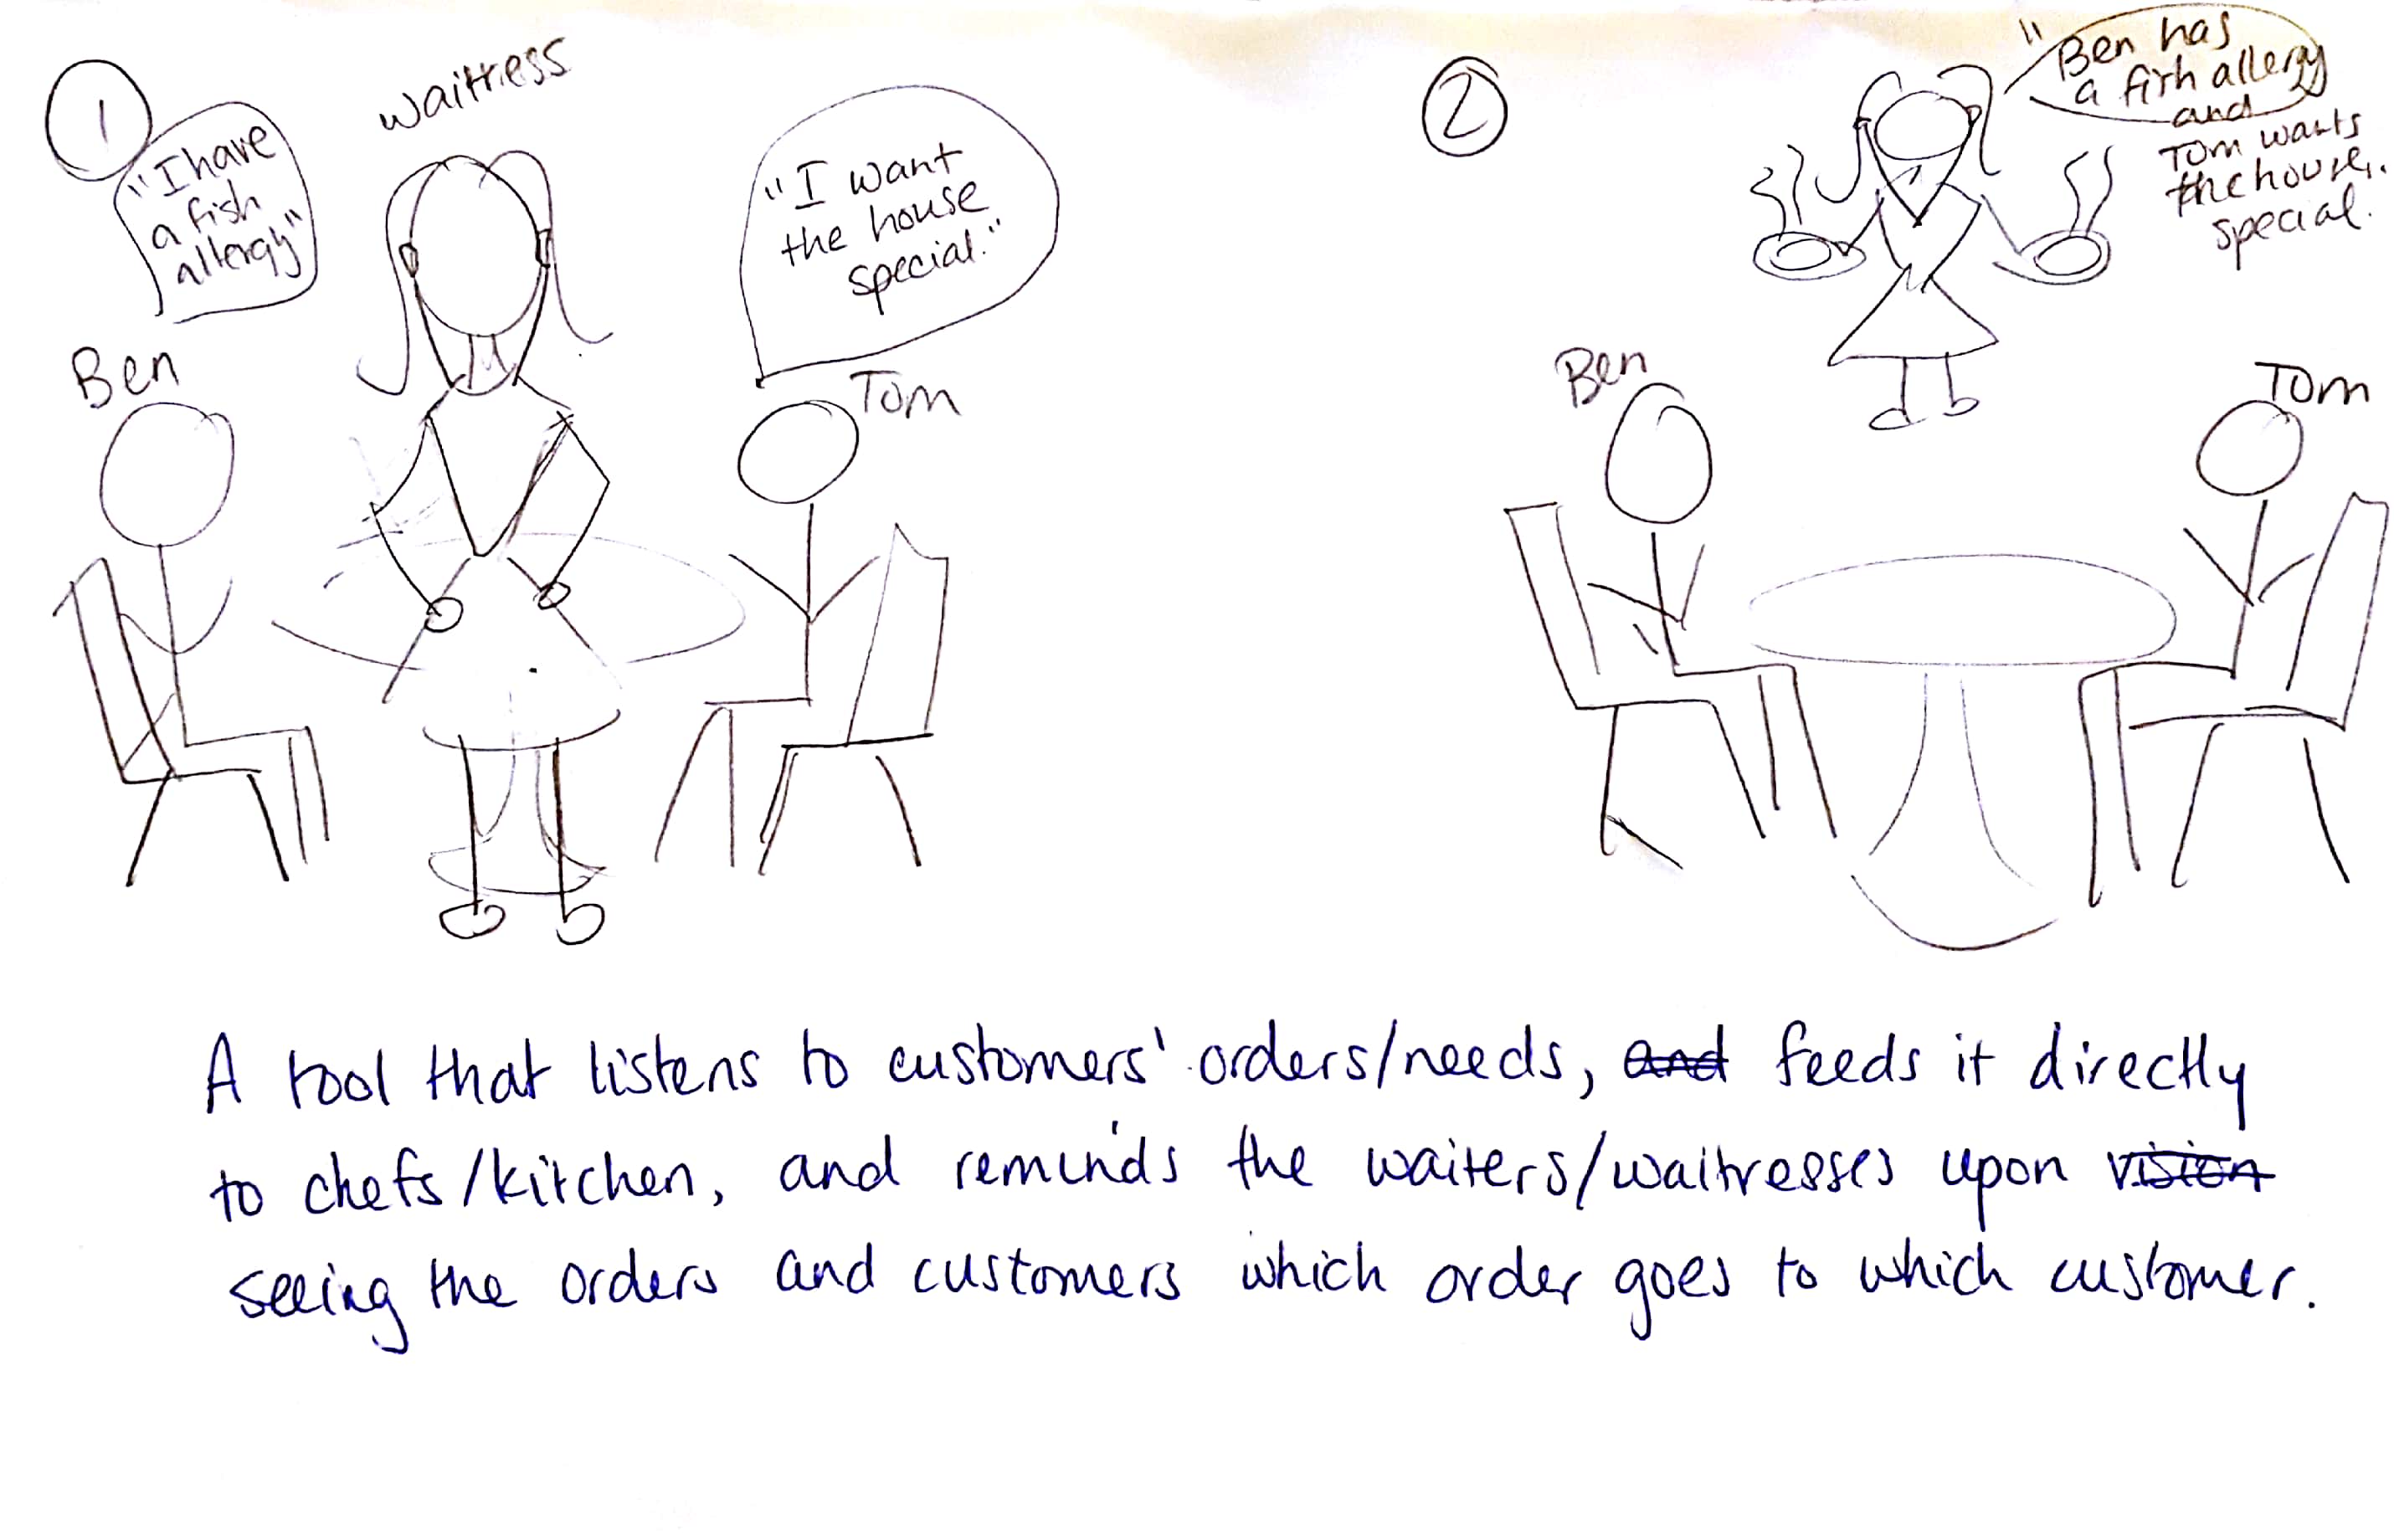 1
"I have
a fish
allergy"
Waitress
"I want
the house
special."
Ben
Tom
2
"Ben has
a fish allergy
and
Tom wants
the house
special.
Ben
Tom
A tool that listens to customers' orders/needs, and feeds it directly
to chefs/kitchen, and reminds the waiters/waitresses upon vision
seeing the orders and customers which order goes to which customer.